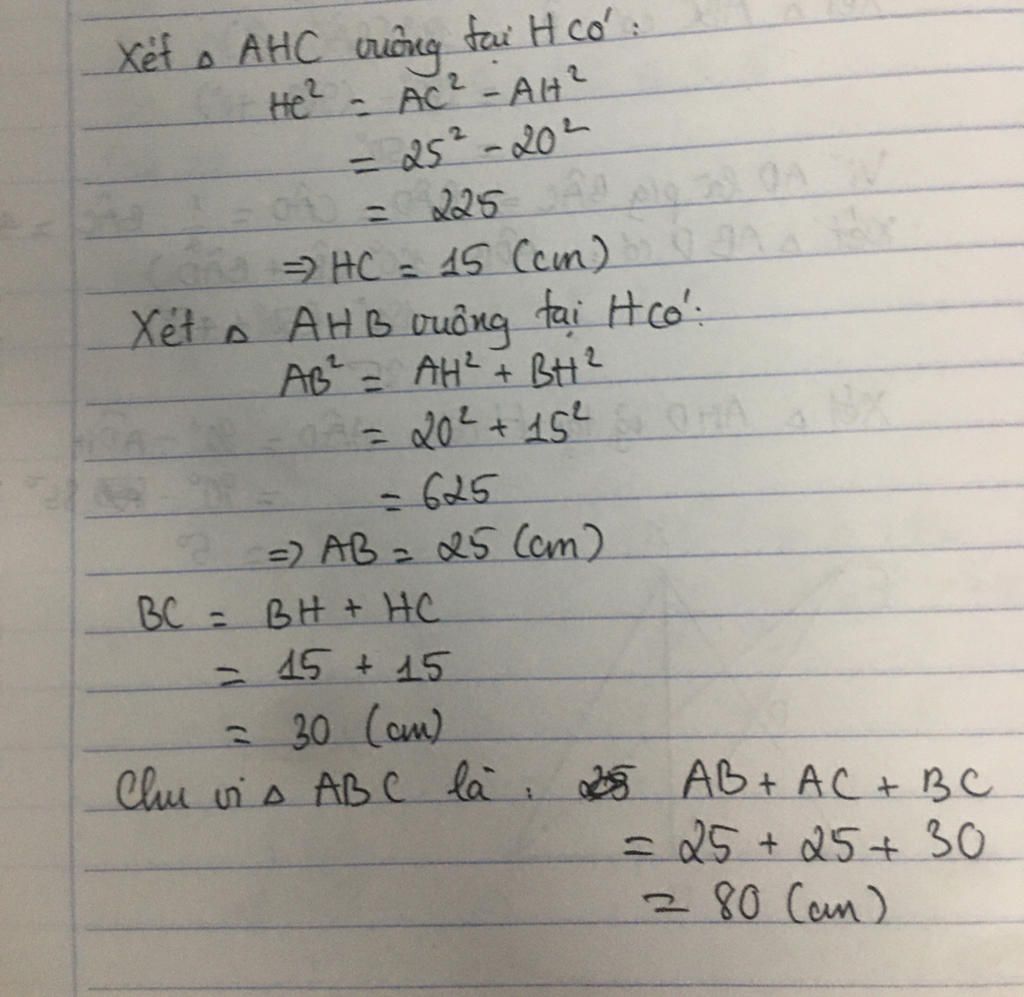 Xét △ AHC vuông tại H có:
HC² = AC² - AH²
= 25² - 20²
= 225
=> HC = 15 (cm)
Xét △ AHB vuông tại H có:
AB² = AH² + BH²
= 20² + 15²
= 625
=> AB = 25 (cm)
BC = BH + HC
= 15 + 15
= 30 (cm)
Chu vi △ ABC là: AB + AC + BC
= 25 + 25 + 30
= 80 (cm)